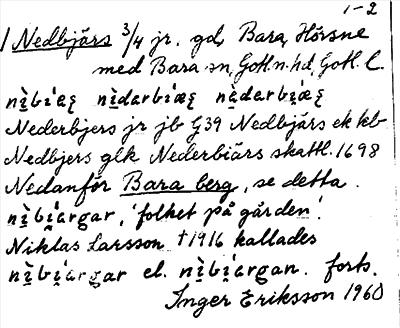 1-2
1 Nedbjärs 3/4 jr. gd, Bara, Hörsne
med Bara sn, Gotl.n.hd, Gotl. l.
nèbiæʂ nèdarbiæʂ nèdarbiæʂ
Nederbjers jr jb G39 Nedbjärs ek kb
Nedbjers glk Nederbiärs skattl. 1698
Nedanför Bara berg, se detta.
nèbíargar, 'folket på gården'.
Niklas Larsson †1916 kallades
nèbíargar el. nèbíargan. forts.
Inger Eriksson 1960